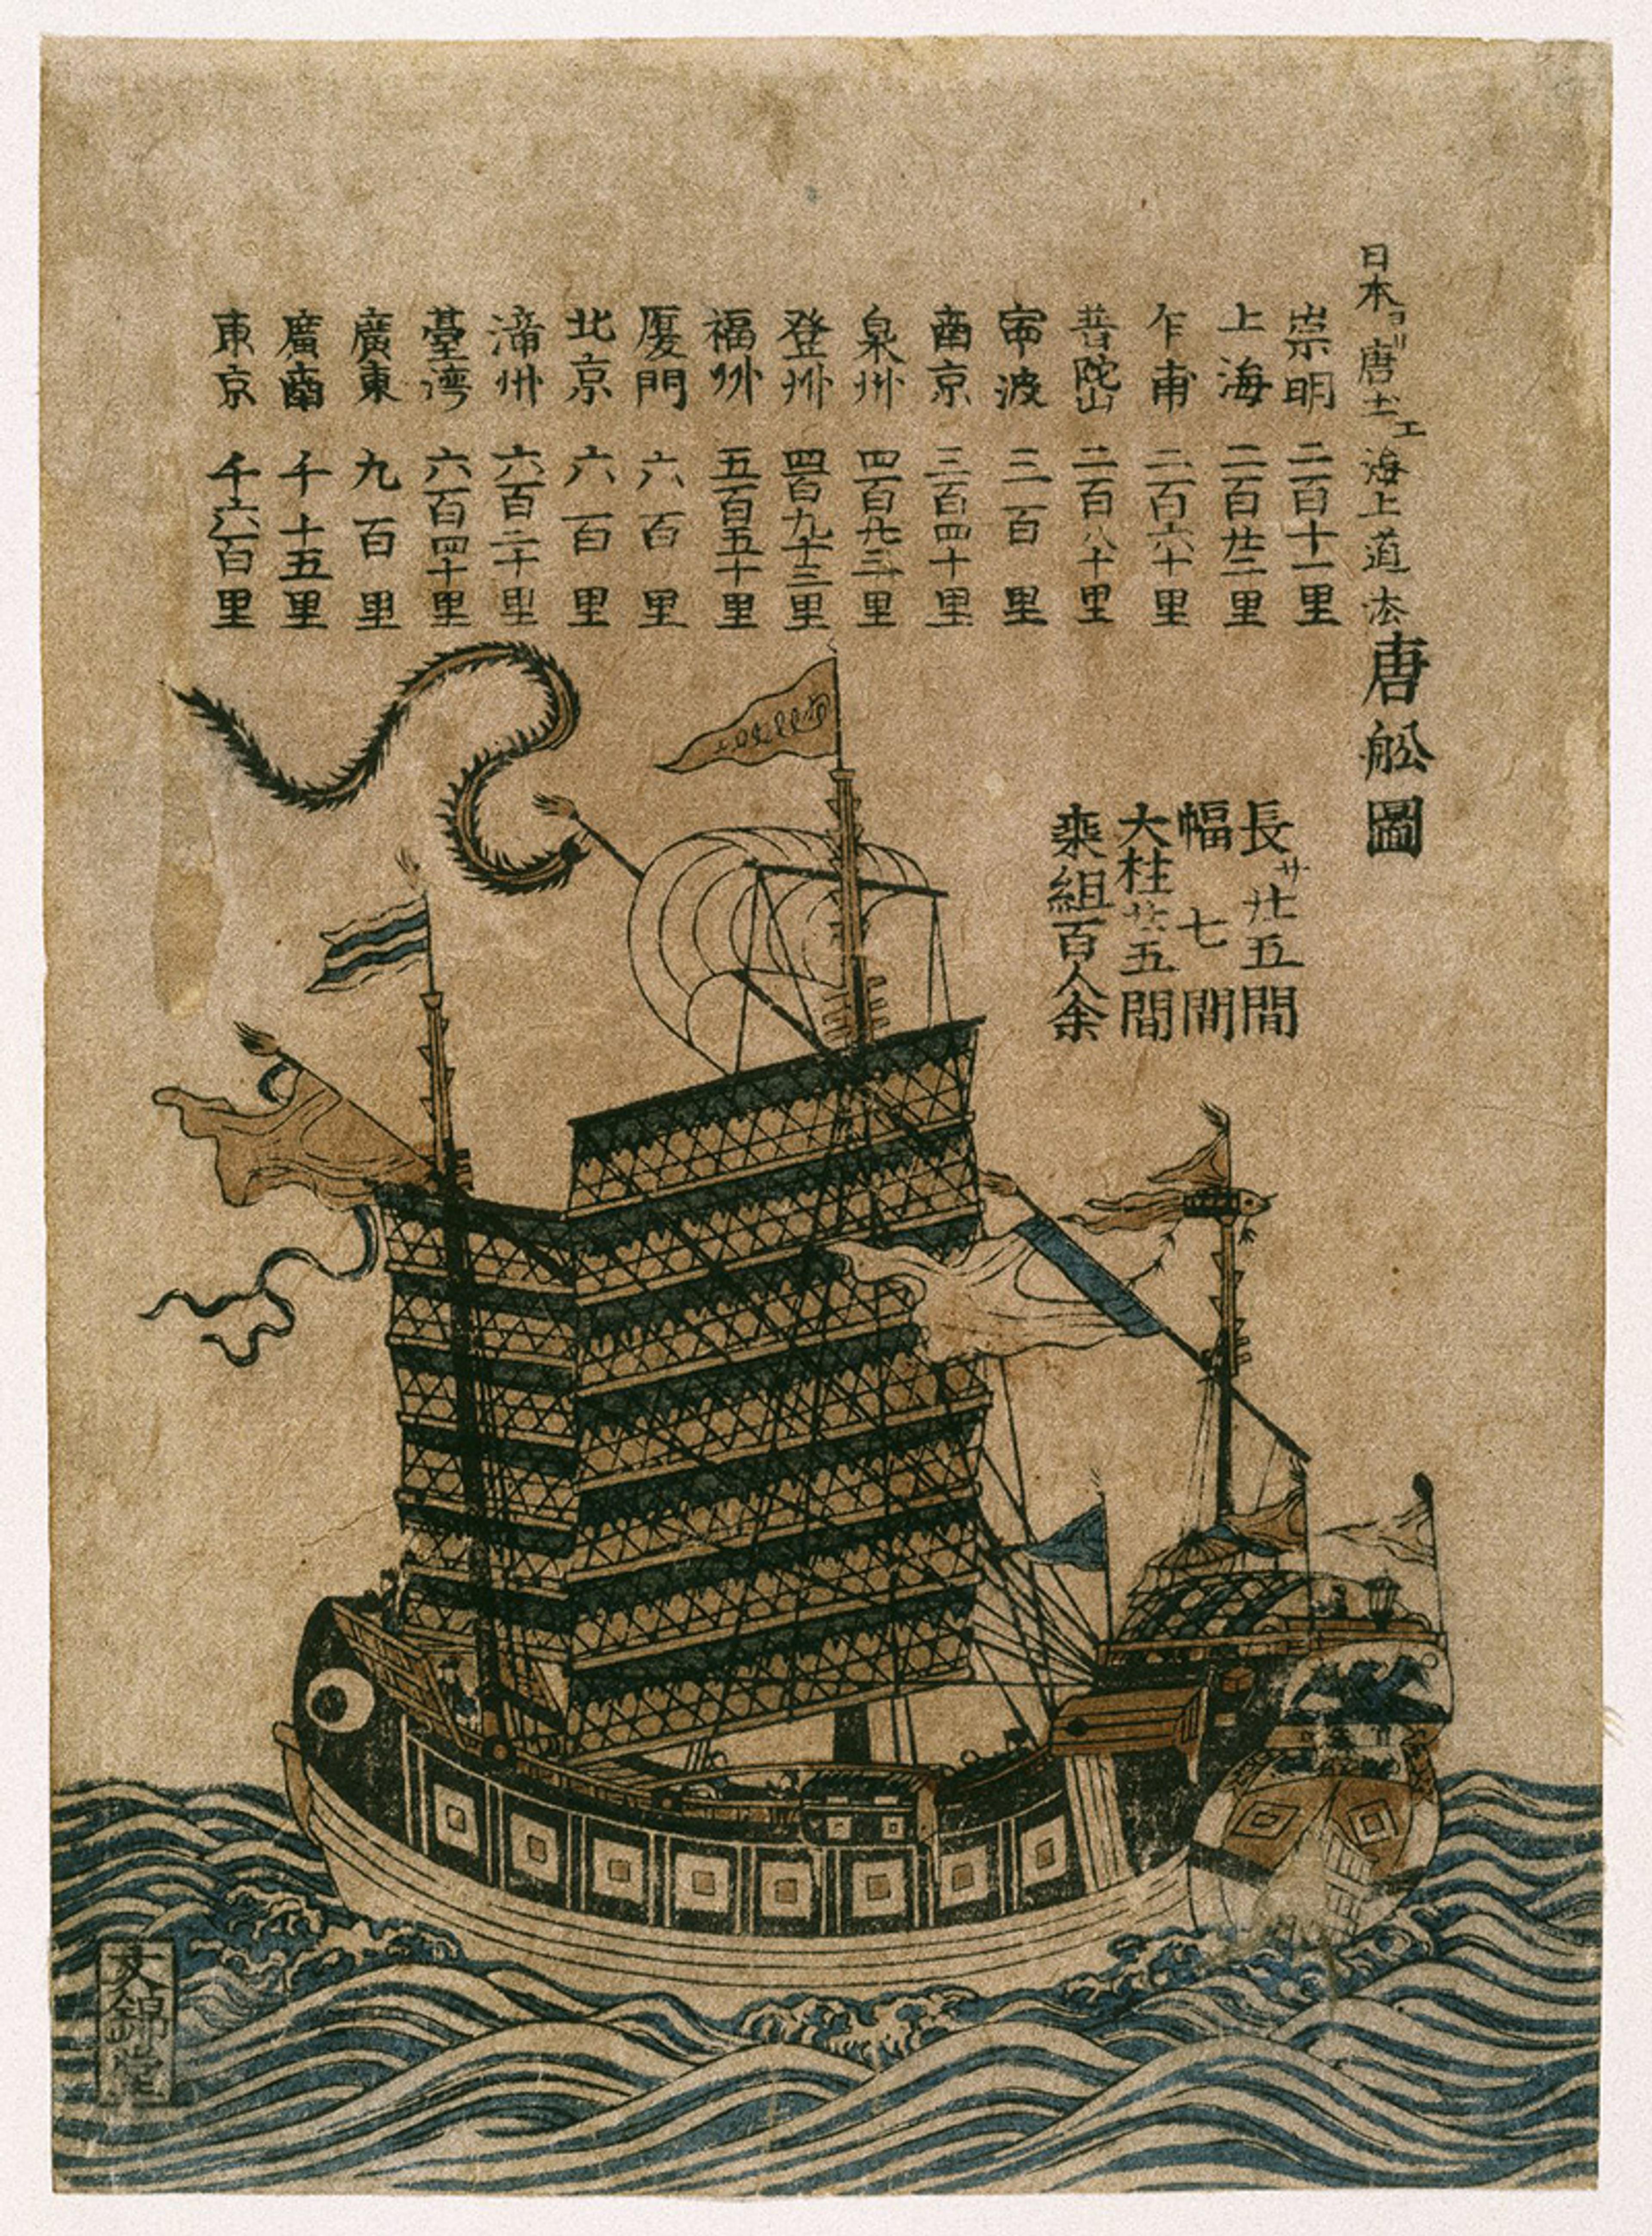 日本ヨリ唐土エ海上道法
唐舩圖
崇明 二百十一里
上海 二百廿二里
乍甫 二百六十里
普陀山 二百八十里
寧波 三百里
南京 三百四十里
泉州 四百九十三里
登州 四百九十三里
福州 五百五十里
廈門 六百里
北京 六百里
漳州 六百二十里
臺湾 六百四十里
廣東 九百里
廣南 千十五里
東京 千六百里
長サ廿五間
幅 七間
大柱廿五間
乘組百人余
文錦堂